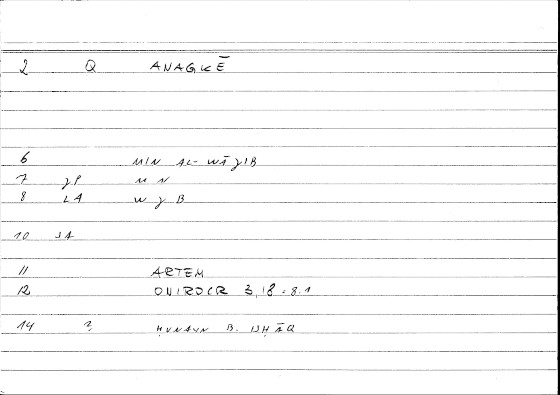 2 Q ANAGKĒ
6 MIN AL-WĀJIB
7 JP MN
8 LA WJB
10 SA
11 ARTEM
12 ONIROCR 3,18 = 8.1
14 2 ḤUNAYN B. ISḤĀQ